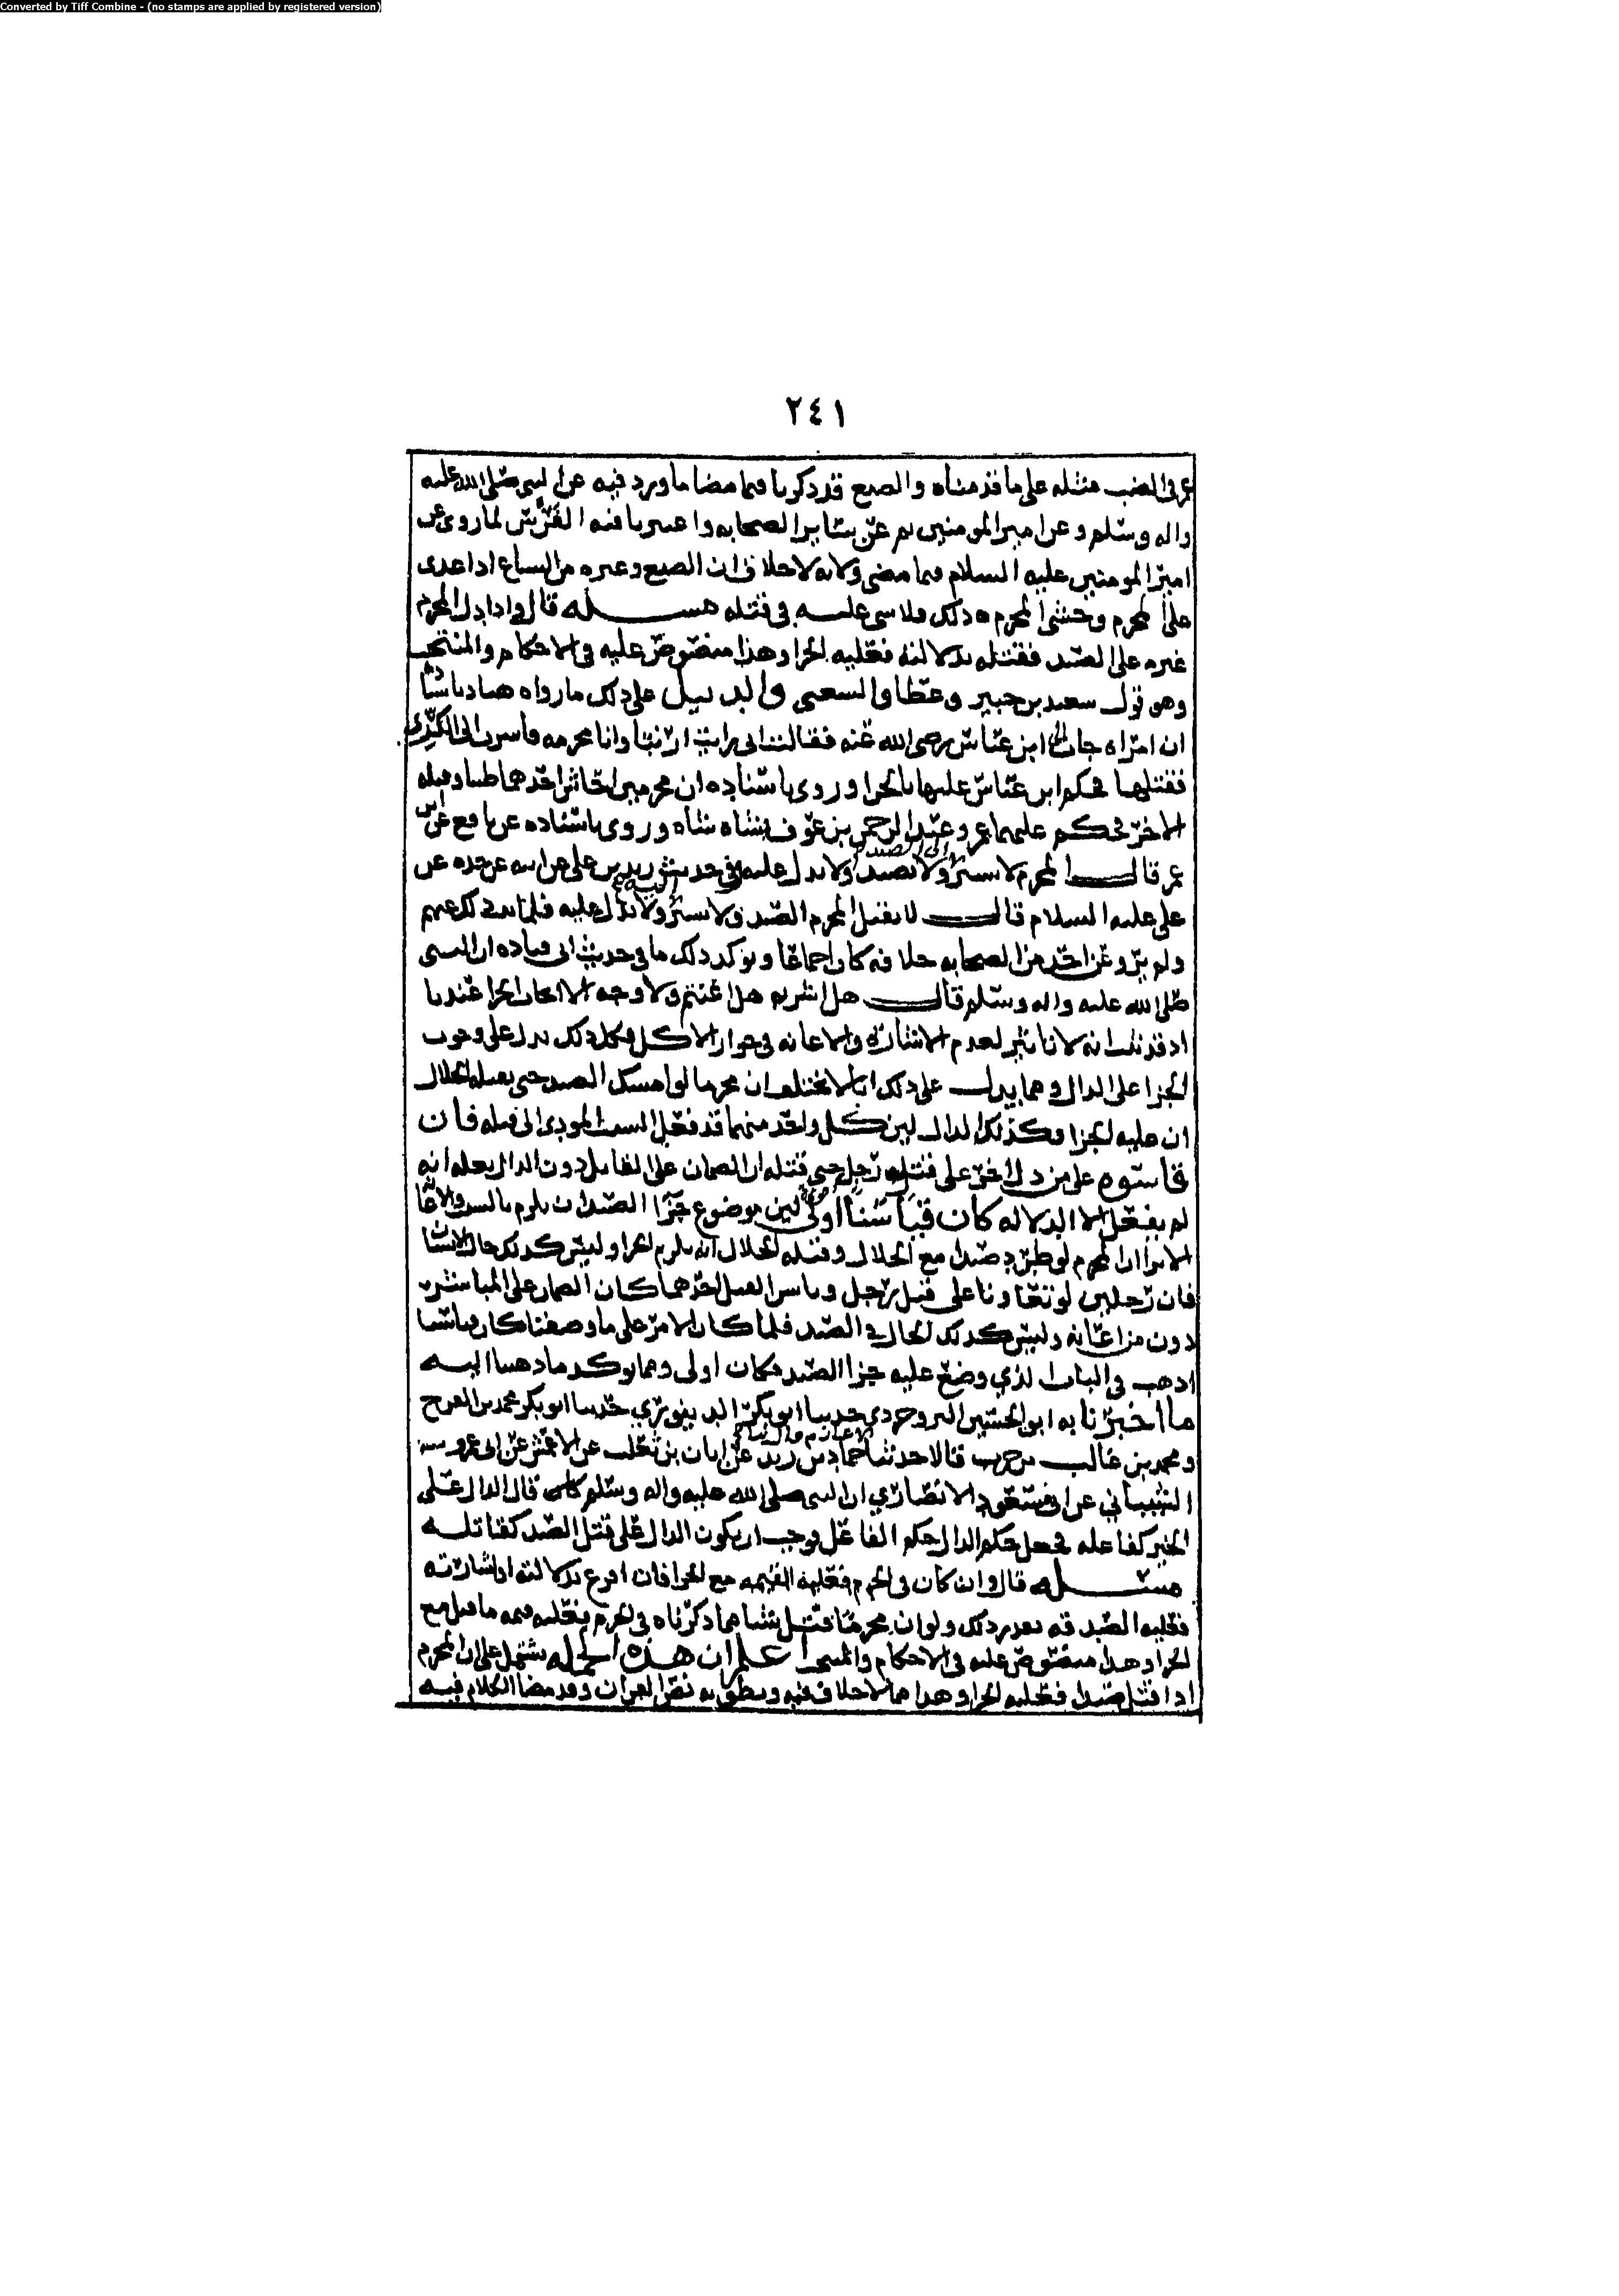 Converted by Tiff Combine - (no stamps are applied by registered version)
٢٤١
عمر في الضب مثله على ما قدمناه والضبع قد ذكرنا فيما مضا ما ورد فيه عن النبي صلى الله عليه
واله وسلم وعن امير المومنين ثم عن سائر الصحابه واعتبرنا فيه الفرس لما روي عن
امير المومنين عليه السلام فيما مضى ولانه لا خلاف ان الضبع وغيره من السباع اذا عدى
على المحرم وخشي المحرم ذلك فلا شي عليه في قتله مسله قال واذا دل المحرم
غيره على الصيد فقتله بدلالته فعليه الجزا وهذا منصوص عليه في الاحكام والمنتخب
وهو قول سعيد بن جبير وعطا والشعبي والدليل على ذلك ما رواه هناد باسناده
ان امراه جات الى ابن عباس رضي الله عنه فقالت اني رايت ارنبا وانا محرمه فاشرت الى الكري
فقتلها فحكم ابن عباس عليها بالجزا وروي باسناده ان محرمين احاش احدهما ظبيا وقتله
الاخر فحكم عليهما عمر وعبد الرحمن بن عوف بشاه شاه وروى باسناده عن نافع عن ابن
عمر قال المحرم لا يشير الى الصيد ولا يصيد ولا يدل عليه وفي حديث زيد بن علي عن ابيه عن جده عن
علي عليه السلام قال لا يقتل المحرم الصيد ولا يشير اليه ولا يدل عليه فلما ثبت ذلك عنهم
ولم يرو عن احد من الصحابه خلافه كان اجماعا ويوكد ذلك ما في حديث ابي قتاده ان النبي
صلى الله عليه واله وسلم قال هل اشرتم هل اعنتم ولا وجه الا ايجاب الجزا عندنا
اذ قد ثبت انه لا تاثير لعدم الاشاره والاعانه في جواز الاكل وكل ذلك يدل على وجوب
الجزا على الدال ومما يدل على ذلك انا لا نختلف ان محرما لو امسك الصيد حتى يقتله الحلال
ان عليه الجزا وكذلك الدال لين كل واحد منهما قد فعل السبب المودي الى قتله فان
قاسوه على من دل اخر على قتل رجل حتى قتله ان الضمان على القاتل دون الدال بعله انه
لم يفعل الا الدلاله كان قياسنا اولى لين موضوع جزا الصيد ان يلزم بالسبب والاعانه
الا ترا ان المحرم لو طرد صيدا مع الحلال وقتله الحلال انه يلزمه الجزا وليس كذلك حال الانسان
فان رجلين لو تعاونا على قتل رجل وباشر القتل احدهما كان الضمان على المباشر
دون من اعانه وليس كذلك الحال في الصيد فلما كان الامر على ما وصفنا كان قياسنا
اذهب في الباب الذي وضع عليه جزا الصيد فكان اولى ومما يوكد ما ذهبنا اليه
ما اخبرنا به ابو الحسين البروجردي حدثنا ابو بكر الدينوري حدثنا ابو بكر محمد بن الفرج
ومحمد بن غالب بن حرب قالا حدثنا حماد بن زيد عن ابان بن تغلب عن الاعمش عن ابي عمرو
الشيباني عن ابي مسعود الانصاري ان النبي صلى الله عليه واله وسلم قال الدال على
الخير كفاعله فجعل حكم الدال حكم الفاعل فوجب ان يكون الدال على قتل الصيد كقاتله
مسئله قال وان كان في الحرم فعليه القيمه مع الجزا فان افزع بدلالته او اشارته
فعليه الصيد ذلك ولو ان محرما قتل شيئا مما ذكرناه في الحرم فعليه قيمه ما قتل مع
الجزا وهذا منصوص عليه في الاحكام والمنتخب اعلم ان هذه الجمله يشتمل على ان المحرم
اذا قتل صيدا فعليه الجزا وهذا مما لا خلاف فيه وينطق به نص القران وقد مضا الكلام فيه